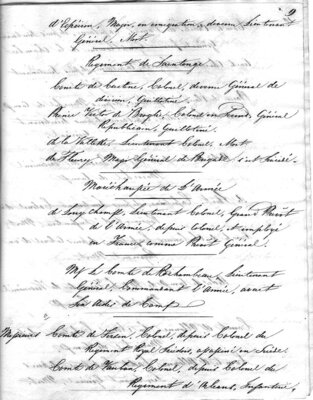 9
d'Espérien, Major, en émigration, devenu Lieutenant
Général, Mort.
Régiment de Saintonge
Comte de Custine, Colonel, devenu Général de
division, Guillotiné.
Prince Victor de Broglie, Colonel en Second, Général
Républicain, Guillotiné.
de la Vallette, Lieutenant Colonel, Mort
de Fleury, Major Général de Brigade s'est Suicidé.
Maréchaussée de l'Armée
de Lieutenant Colonel, Grand Prévôt
de l'Armée, depuis Colonel, et employé
en France comme Prévôt Général.
Mr le Comte de Rochambeau, Lieutenant
Général, Commandant l'Armée, avait
Pour Aides de Camp
Messieurs Comte de Fersen, Colonel, depuis Colonel du
Régiment Royal Suédois, assassiné en Suède.
Comte de Vauban, Colonel, depuis Colonel du
Régiment d'Orléans, Infanterie,